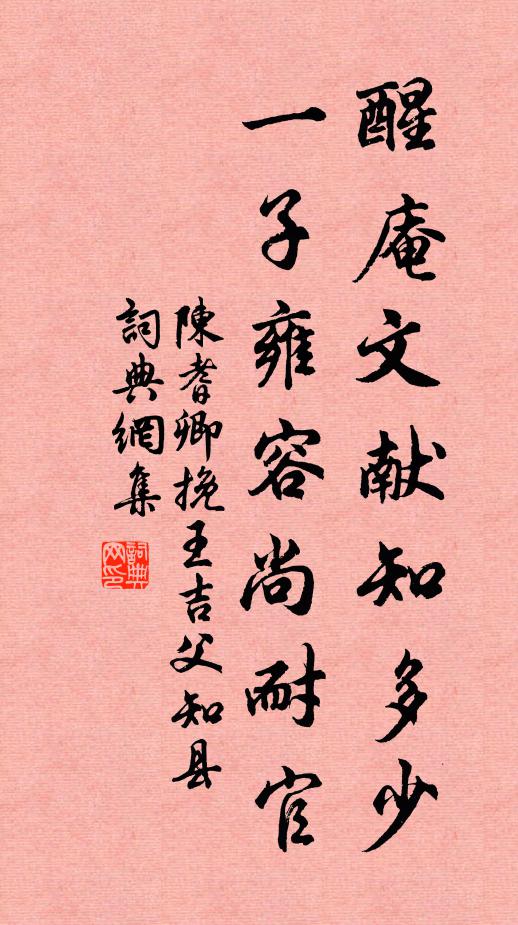 醒庵文献知多少
一子雍容尚耐官
陳耆卿挽王吉父知县
詞典網集
詞典網印